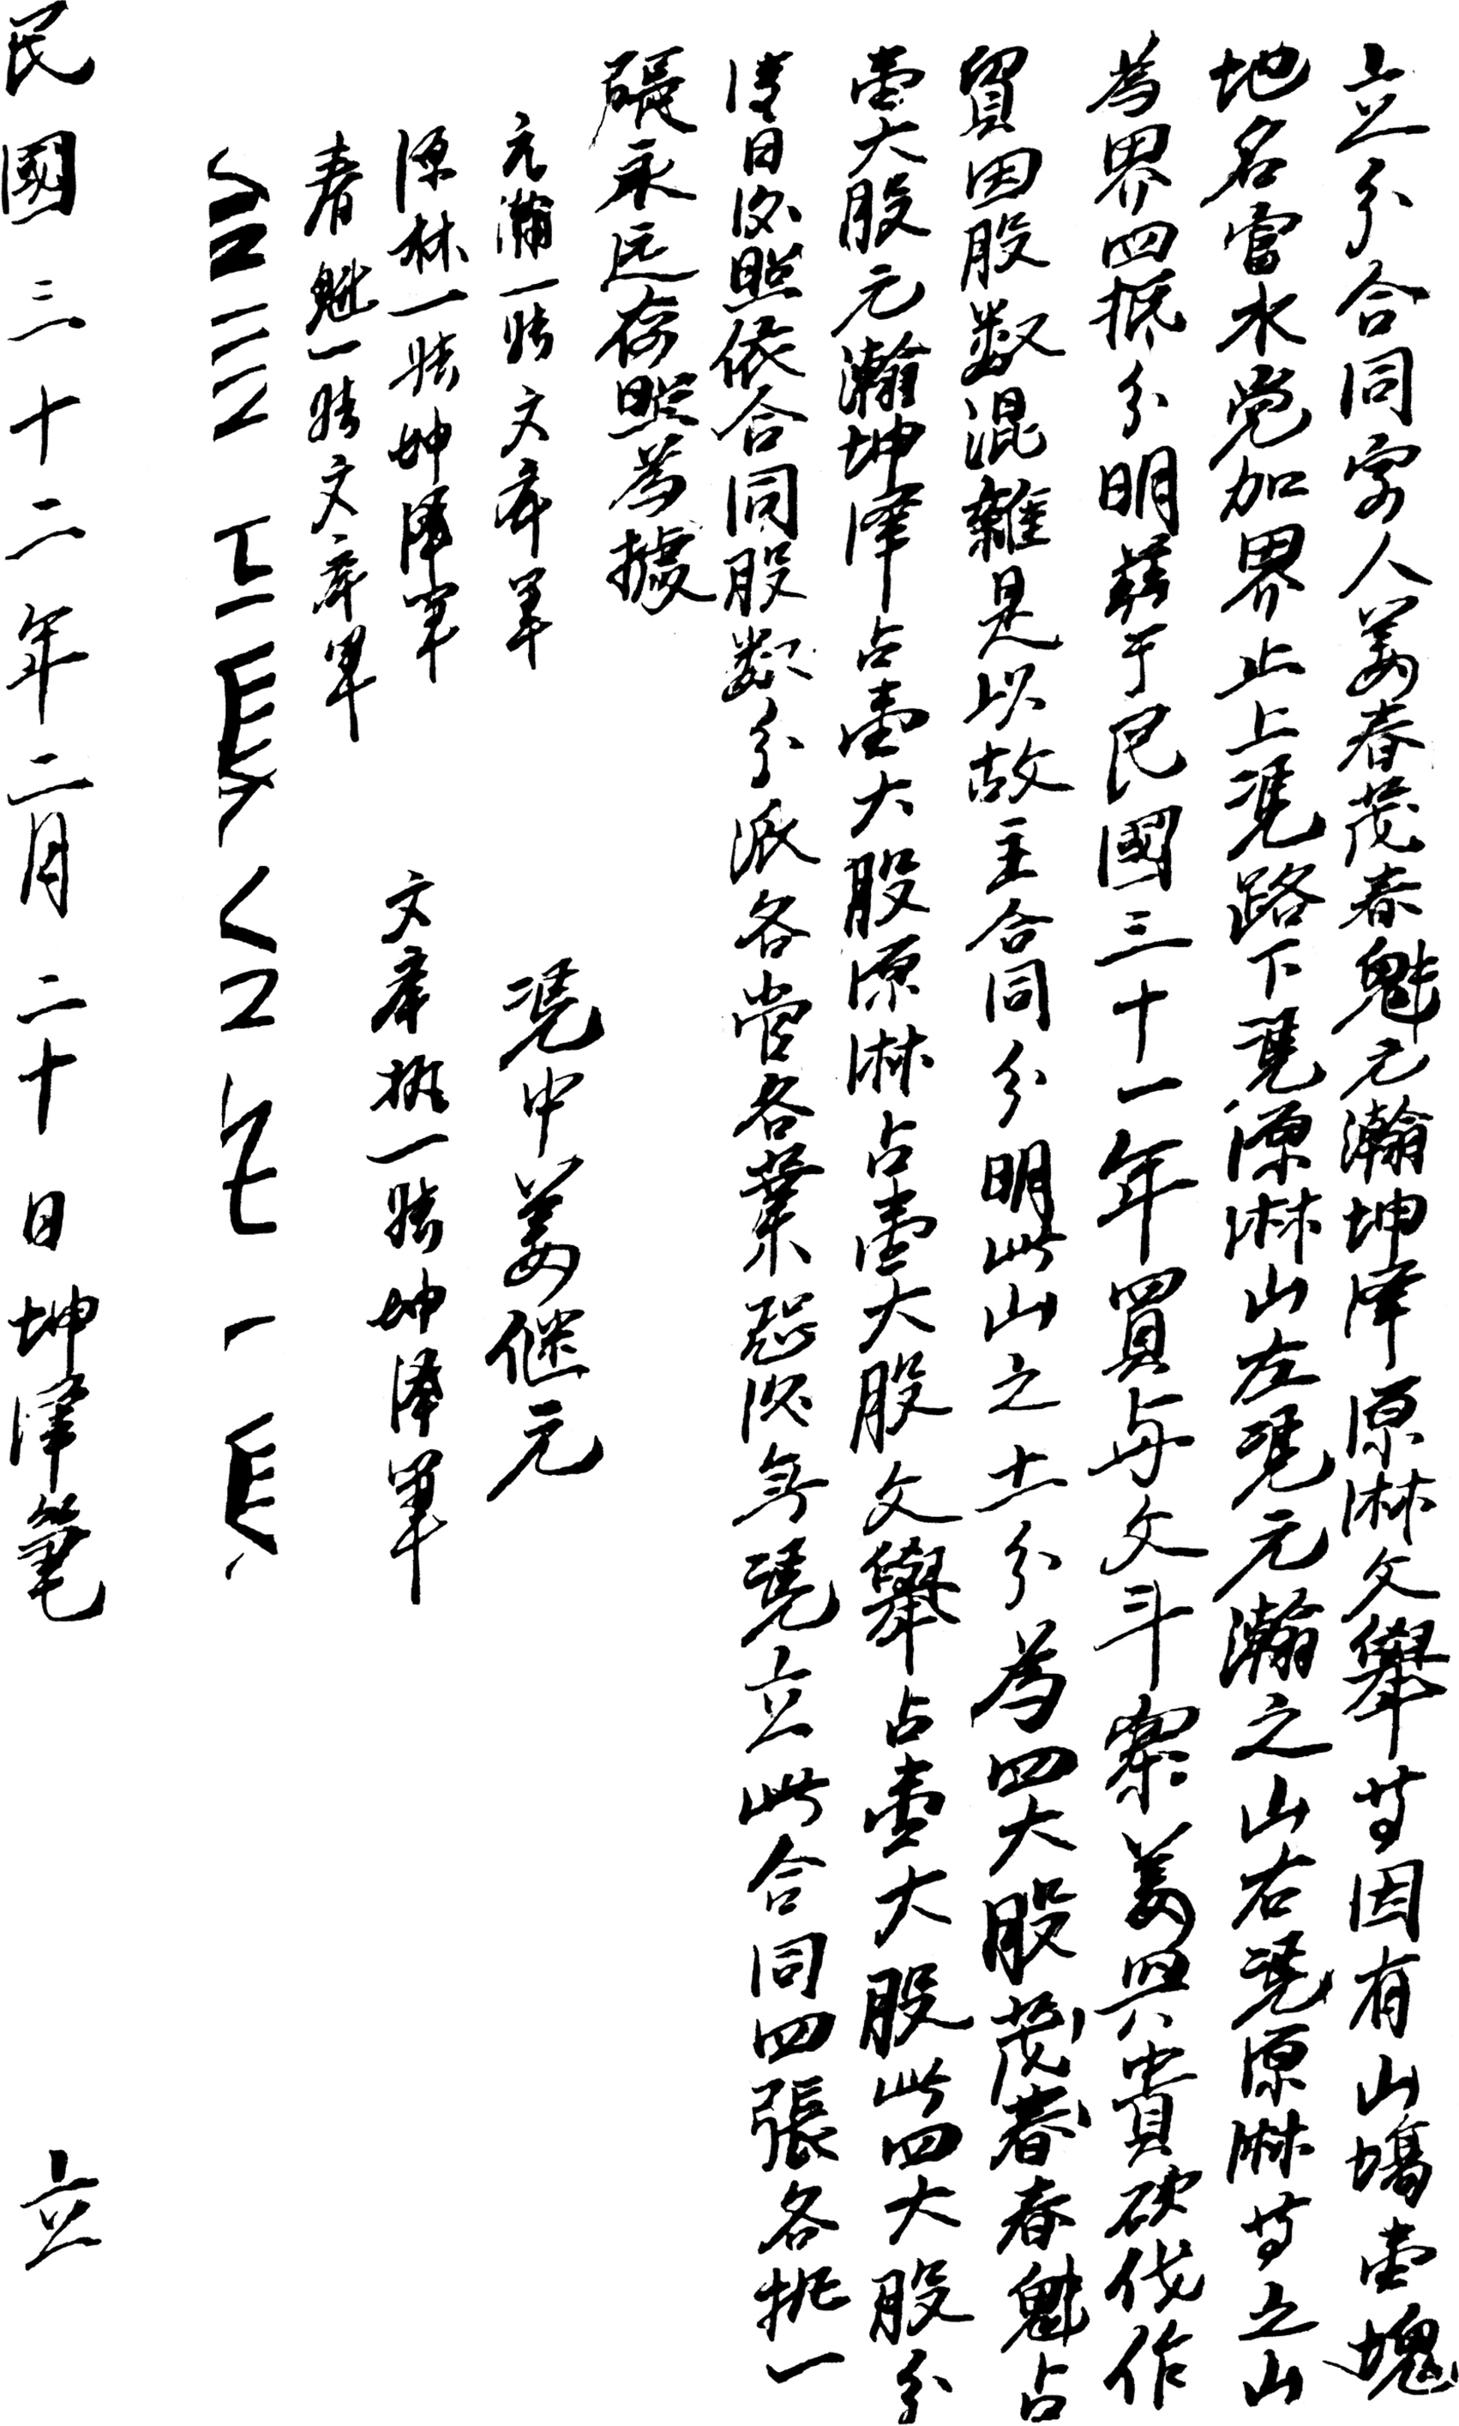 立分合同字人姜春茂春魁元瀚坤泽原淋文舉等因有山塲壹塊
地名當水党加界止上凴路下凴源淋山左凴元瀚之山右凴原淋等之山
為界四抵分明兹于民國三十一年買与文斗寨姜興貴砍伐作
貿因股数混雜是以故立合同分明此山之土分為四大股茂春春魁占
壹大股元瀚坤泽占壹大股源淋占壹大股文舉占壹大股此四大股分
後日後照依合同股数分派各管各業恐後無凴立此合同四張各执一
張永远存照為據
凴中姜继元
元瀚一帋文举筆
源林一帋坤泽筆
文举执一帋坤泽筆
春魁一帋文举筆
民國三十二年二月二十日坤泽筆 立